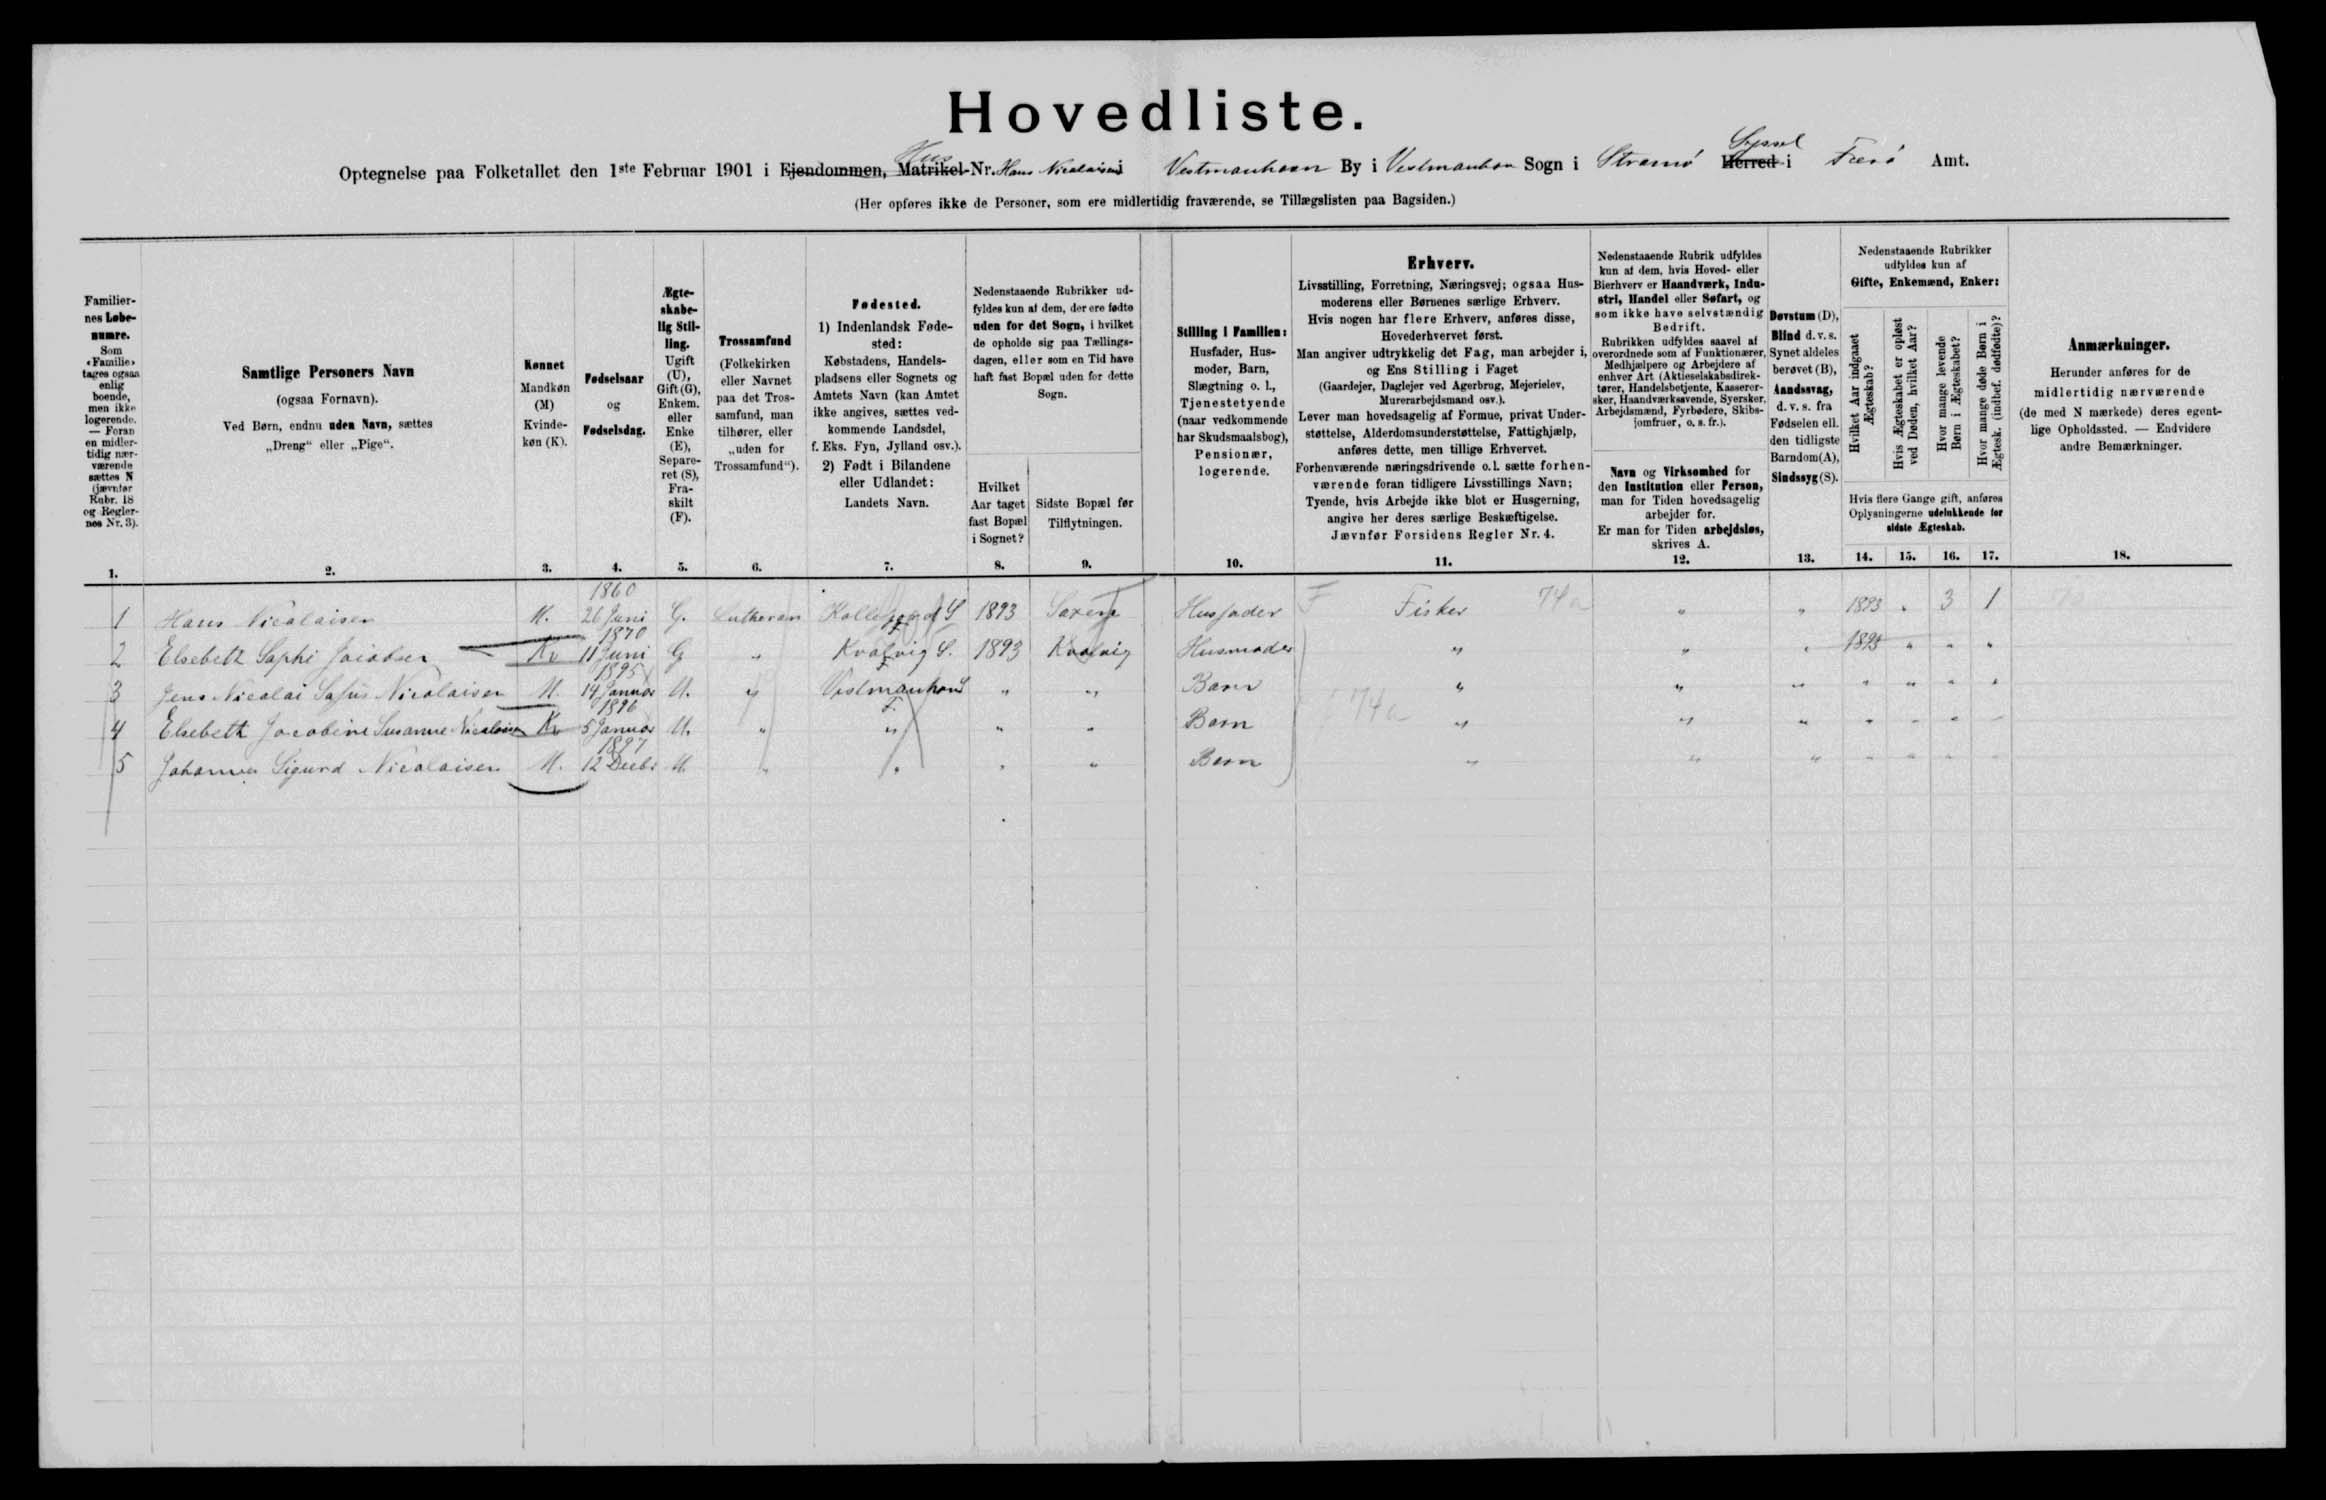 Hovedliste.
Optegnelse paa Folketallet den 1ste Februar 1901 i Ejendommen, Matrikel-Nr. Hus Hans Nicolaisens i Vestmanhavn By i Vestmanhavn Sogn i Strømø Herred Syssel i Færø Amt.
(Her opføres ikke de Personer, som ere midlertidig fraværende, se Tillægslisten paa Bagsiden.)
Familiernes Løbenumre.
Som «Familie» tages ogsaa enlig boende, men ikke logerende. — Foran en midlertidig nærværende sættes N (jævnfør Rubr. 18 og Reglernes Nr. 3).
Samtlige Personers Navn
(ogsaa Fornavn).
Ved Børn, endnu uden Navn, sættes
„Dreng“ eller „Pige“.
Kønnet
Mandkøn (M)
Kvindekøn (K).
Fødselsaar
og
Fødselsdag.
Ægteskabelig Stilling.
Ugift (U), Gift (G), Enkem. eller Enke (E), Separeret (S), Fraskilt (F).
Trossamfund
(Folkekirken eller Navnet paa det Trossamfund, man tilhører, eller „uden for Trossamfund“).
Fødested.
1) Indenlandsk Fødested:
Købstadens, Handelspladsens eller Sognets og Amtets Navn (kan Amtet ikke angives, sættes vedkommende Landsdel, f. Eks. Fyn, Jylland osv.).
2) Født i Bilandene eller Udlandet:
Landets Navn.
Nedenstaaende Rubrikker udfyldes kun af dem, der ere fødte uden for det Sogn, i hvilket de opholde sig paa Tællingsdagen, eller som en Tid have haft fast Bopæl uden for dette Sogn.
Hvilket Aar taget fast Bopæl i Sognet?
Sidste Bopæl før Tilflytningen.
Stilling i Familien:
Husfader, Husmoder, Barn, Slægtning o. l., Tjenestetyende (naar vedkommende har Skudsmaalsbog), Pensionær, logerende.
Erhverv.
Livsstilling, Forretning, Næringsvej; ogsaa Husmoderens eller Børnenes særlige Erhverv.
Hvis nogen har flere Erhverv, anføres disse, Hovederhvervet først.
Man angiver udtrykkelig det Fag, man arbejder i, og Ens Stilling i Faget
(Gaardejer, Daglejer ved Agerbrug, Mejerielev, Murerarbejdsmand osv.).
Lever man hovedsagelig af Formue, privat Understøttelse, Alderdomsunderstøttelse, Fattighjælp, anføres dette, men tillige Erhvervet.
Forhenværende næringsdrivende o. l. sætte forhenværende foran tidligere Livsstillings Navn;
Tyende, hvis Arbejde ikke blot er Husgerning, angive her deres særlige Beskæftigelse.
Jævnfør Forsidens Regler Nr. 4.
Nedenstaaende Rubrik udfyldes kun af dem, hvis Hoved- eller Bierhverv er Haandværk, Industri, Handel eller Søfart, og som ikke have selvstændig Bedrift.
Rubrikken udfyldes saavel af overordnede som af Funktionærer, Medhjælpere og Arbejdere af enhver Art (Aktieselskabsdirektører, Handelsbetjente, Kasserersker, Haandværkssvende, Syersker, Arbejdsmænd, Fyrbødere, Skibsjomfruer, o. s. fr.).
Navn og Virksomhed for den Institution eller Person, man for Tiden hovedsagelig arbejder for.
Er man for Tiden arbejdsløs, skrives A.
Døvstum (D), Blind d. v. s. Synet aldeles berøvet (B), Aandssvag, d. v. s. fra Fødselen ell. den tidligste Barndom (A), Sindssyg (S).
Nedenstaaende Rubrikker udfyldes kun af
Gifte, Enkemænd, Enker:
Hvilket Aar indgaaet Ægteskab?
Hvis Ægteskabet er opløst ved Døden, hvilket Aar?
Hvor mange levende Børn i Ægteskabet?
Hvor mange døde Børn i Ægtesk. (indbef. dødfødte)?
Hvis flere Gange gift, anføres Oplysningerne udelukkende for sidste Ægteskab.
Anmærkninger.
Herunder anføres for de midlertidig nærværende (de med N mærkede) deres egentlige Opholdssted. — Endvidere andre Bemærkninger.
1. 2. 3. 4. 5. 6. 7. 8. 9. 10. 11. 12. 13. 14. 15. 16. 17. 18.
1 Hans Nicolaisen M. 1860 26 Juni G. Lutheran Kollefjord S 1893 Saxen Husfader F Fisker 74a " " 1893 " 3 1
2 Elsebeth Sophi Jacobsen Kv 1870 11 Juni G " Kvalvig S. 1893 Kvalvig Husmoder " " " 1893 " " "
3 Jens Nicolai Nicolaisen M. 1895 14 Januar U. " Vestmanhavn " " Barn " " " " " " "
4 Elsebeth Jacobine Susanne Nicolaisen Kv 1896 5 Januar U. " " " " Barn 74a " " " " " " "
5 Johannes Sigurd Nicolaisen M. 1897 12 Decbr U " " " " Barn " " " " " " "